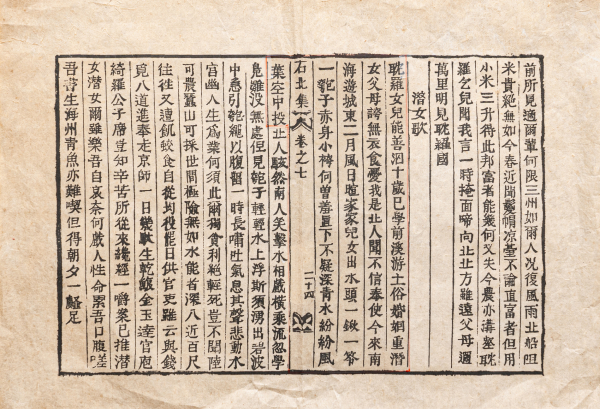 前所見適爾輩何限三州如爾人况復風雨北船阻
米貴絶無如今春近聞鬉帽凉臺不論直富者但用
小米三升得此邦富者能幾何又失今農亦溝壑耽
羅乞兒聞我言一時掩面啼向北北方雖遠父母邇
萬里明見耽羅國
潜女歌
耽羅女兒能善泅十歲已學前溪游土俗婚姻重潜
女父母誇無衣食憂我是北人聞不信奉使今來南
海遊城東二月風日暄家家兒女出水頭一鍬一笭
一匏子赤身小袴何曾羞直下不疑深青水紛紛風
石北集 卷之七 二十四
葉空中投北人駭然南人笑擊水相戲橫乘流忽學
鳧雛沒無處但見匏子輕輕水上浮斯須湧出碧波
中急引匏繩以腹留一時長嘯吐氣息其聲悲動水
宮幽人生爲業何須此爾獨貪利絶輕死豈不聞陸
可農蠶山可採世間極險無如水能者深入近百尺
往往又遭飢蛟食自從均役罷日供官吏雖云與錢
覓八道進奉走京師一日幾馱生乾鰒金玉達官庖
綺羅公子席豈知辛苦所從來纔經一嚼案已推潜
女潜女爾雖樂吾自哀奈何戲人性命累吾口腹嗟
吾書生海州青魚亦難喫但得朝夕一䪥足